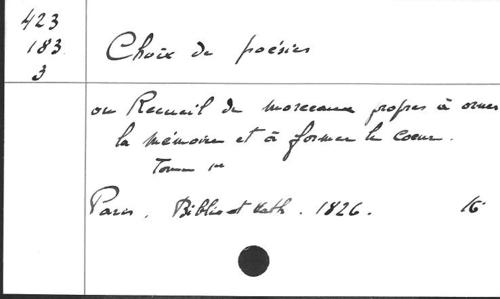 423
183
3
Choix de poésies
ou Recueil de morceaux propres à orner
la mémoire et à former le coeur.
Tome 1er
Paris. Biblio et Cath. 1826. 16